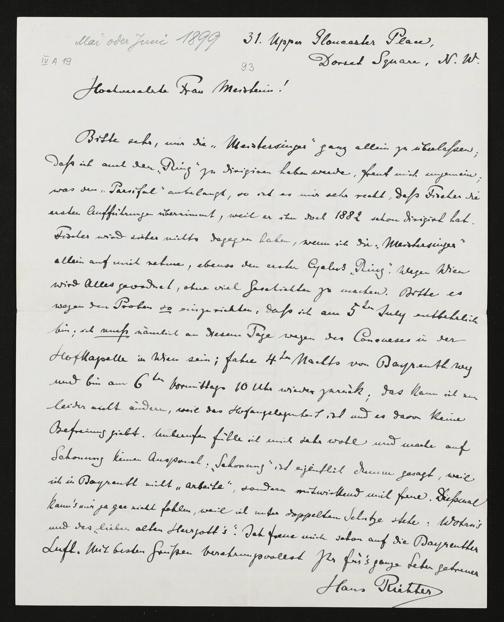 Mai oder Juni 1899
31. Upper Gloucester Place,
Dorset Square, N. W.
IV A 19
93
Hochverehrte Frau Meisterin!
Bitte sehr, mir die „Meistersinger" ganz allein zu überlassen;
daß ich auch den „Ring" zu dirigiren haben werde, freut mich ungemein;
was den „Parsifal" anbelangt, so ist es mir sehr recht, daß Fischer die
ersten Aufführungen übernimmt, weil er ihn doch 1882 schon dirigirt hat.
Fischer wird sicher nichts dagegen haben, wenn ich die „Meistersinger"
allein auf mich nehme, ebenso den ersten Cyclus „Ring". Wegen Wien
wird Alles geordnet, ohne viel Geschichten zu machen. Bitte es
wegen den Proben so einzurichten, daß ich am 5ten July entbehrlich
bin; ich muß nämlich an diesem Tage wegen des Concurses in der
Hofkapelle in Wien sein; fahre 4ten Nachts von Bayreuth weg
und bin am 6ten Vormittags 10 Uhr wieder zurück; das kann ich
leider nicht ändern, weil das Hofangelegenheit ist und es davon keine
Befreiung giebt. Unberufen fühle ich mich sehr wohl und mache auf
Schonung keinen Anspruch; „Schonung" ist eigentlich dumm gesagt, weil
ich in Bayreuth nicht „arbeite", sondern mitwirkend mich freue. Dießmal
kann's mir ja gar nicht fehlen, weil ich unter doppeltem Schutze stehe: Wotan's
und des „lieben alten Herrgott's". Ich freue mich schon auf die Bayreuther
Luft. Mit besten Grüßen verehrungsvollst Ihr für's ganze Leben getreuer
Hans Richter